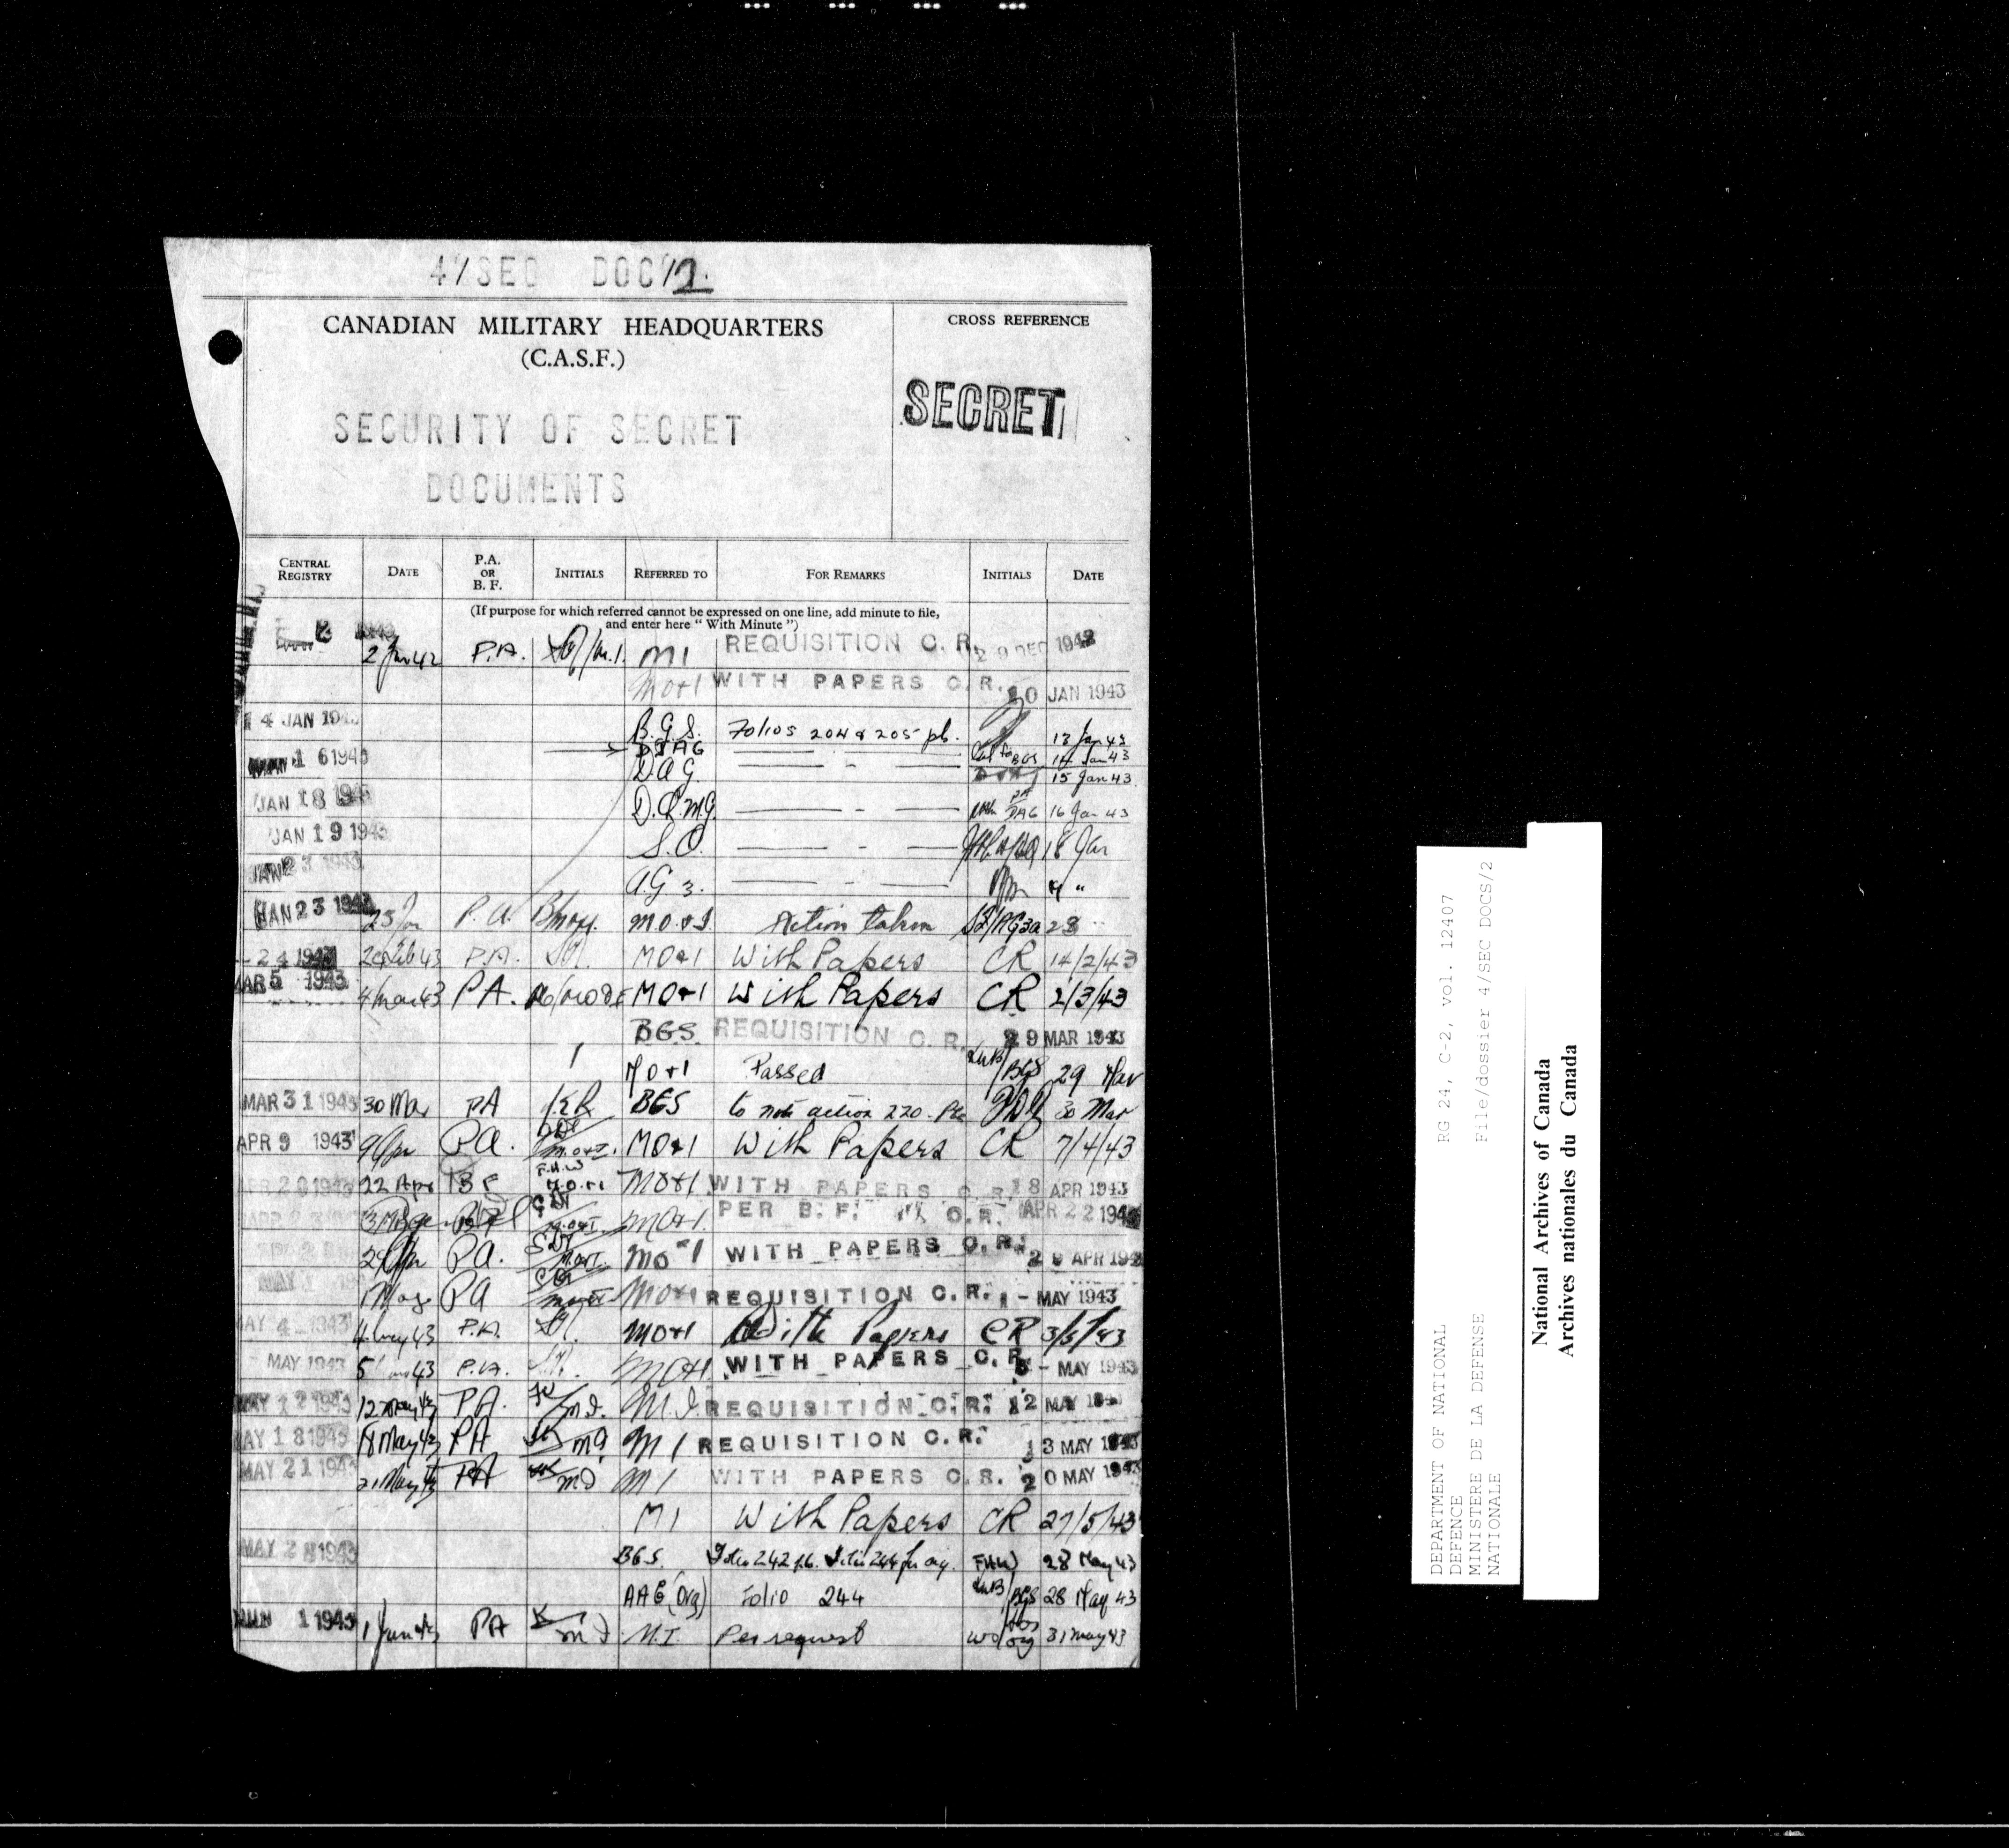 4/SEC DOC/2
CANADIAN MILITARY HEADQUARTERS
(C.A.S.F.)
CROSS REFERENCE
SECRET
SECURITY OF SECRET
DOCUMENTS
CENTRAL REGISTRY DATE P.A. OR B. F. INITIALS REFERRED TO FOR REMARKS INITIALS DATE
(If purpose for which referred cannot be expressed on one line, add minute to file,
and enter here " With Minute ")
P.A. MI REQUISITION C. R. 29 DEC 1942
MO&I WITH PAPERS C. R. JAN 1943
14 JAN B.G.S. Folios 204 & 205 pl. 13 Jan 43
16 1943 DJAG BGS 14 Jan 43
D.A.G. 15 Jan 43
JAN 18 D.Q.M.G. 16 Jan 43
JAN 19 1943 S.O. 18 Jan
JAN 23 1943 A.G 3. "
JAN 23 1943 P.A. M.O.&I. Action taken AG3a 23
24 1943 P.A. MO&I With Papers CR 14/2/43
MAR 5 1943 4 Mar 43 PA. MO&I With Papers CR 2/3/43
BGS REQUISITION C. R. 29 MAR 1943
MO&I Passed BGS 29 Mar
MAR 31 1943 30 Mar PA BGS to note action 220. 30 Mar
APR 9 1943 PA. MO&I With Papers CR 7/4/43
APR 20 1943 22 Apr BF F.H.W MO&I WITH PAPERS C. R. 18 APR 1943
MO&I. PER B. F. C. R. APR 22 194
PA. MO&I WITH PAPERS C. R. 29 APR 194
MAY 1 PA MO&I REQUISITION C. R. 1 - MAY 1943
MAY 4 1943 4 May 43 P.A. MO&I With Papers CR 3/5/43
MAY 1943 5 43 P.A. MO&I WITH PAPERS C. R. 5 - MAY 1943
MAY 12 1943 12 May 43 PA. M.I. REQUISITION C. R. 12 MAY
MAY 18 1943 18 May 43 PA MI MI REQUISITION C. R. 13 MAY 1943
MAY 21 1943 21 May 43 PA M.I MI WITH PAPERS C. R. 20 MAY 1943
MI With Papers CR 27/5/43
MAY 28 1943 BGS. Folio 242 Folio 244 FHW 28 May 43
AAG (Org) Folio 244 BGS 28 May 43
JUN 1 1943 1 Jun 43 PA M.I. Per request 31 May 43
DEPARTMENT OF NATIONAL
DEFENCE
MINISTERE DE LA DEFENSE
NATIONALE
RG 24, C-2, vol. 12407
File/dossier 4/SEC DOCS/2
National Archives of Canada
Archives nationales du Canada